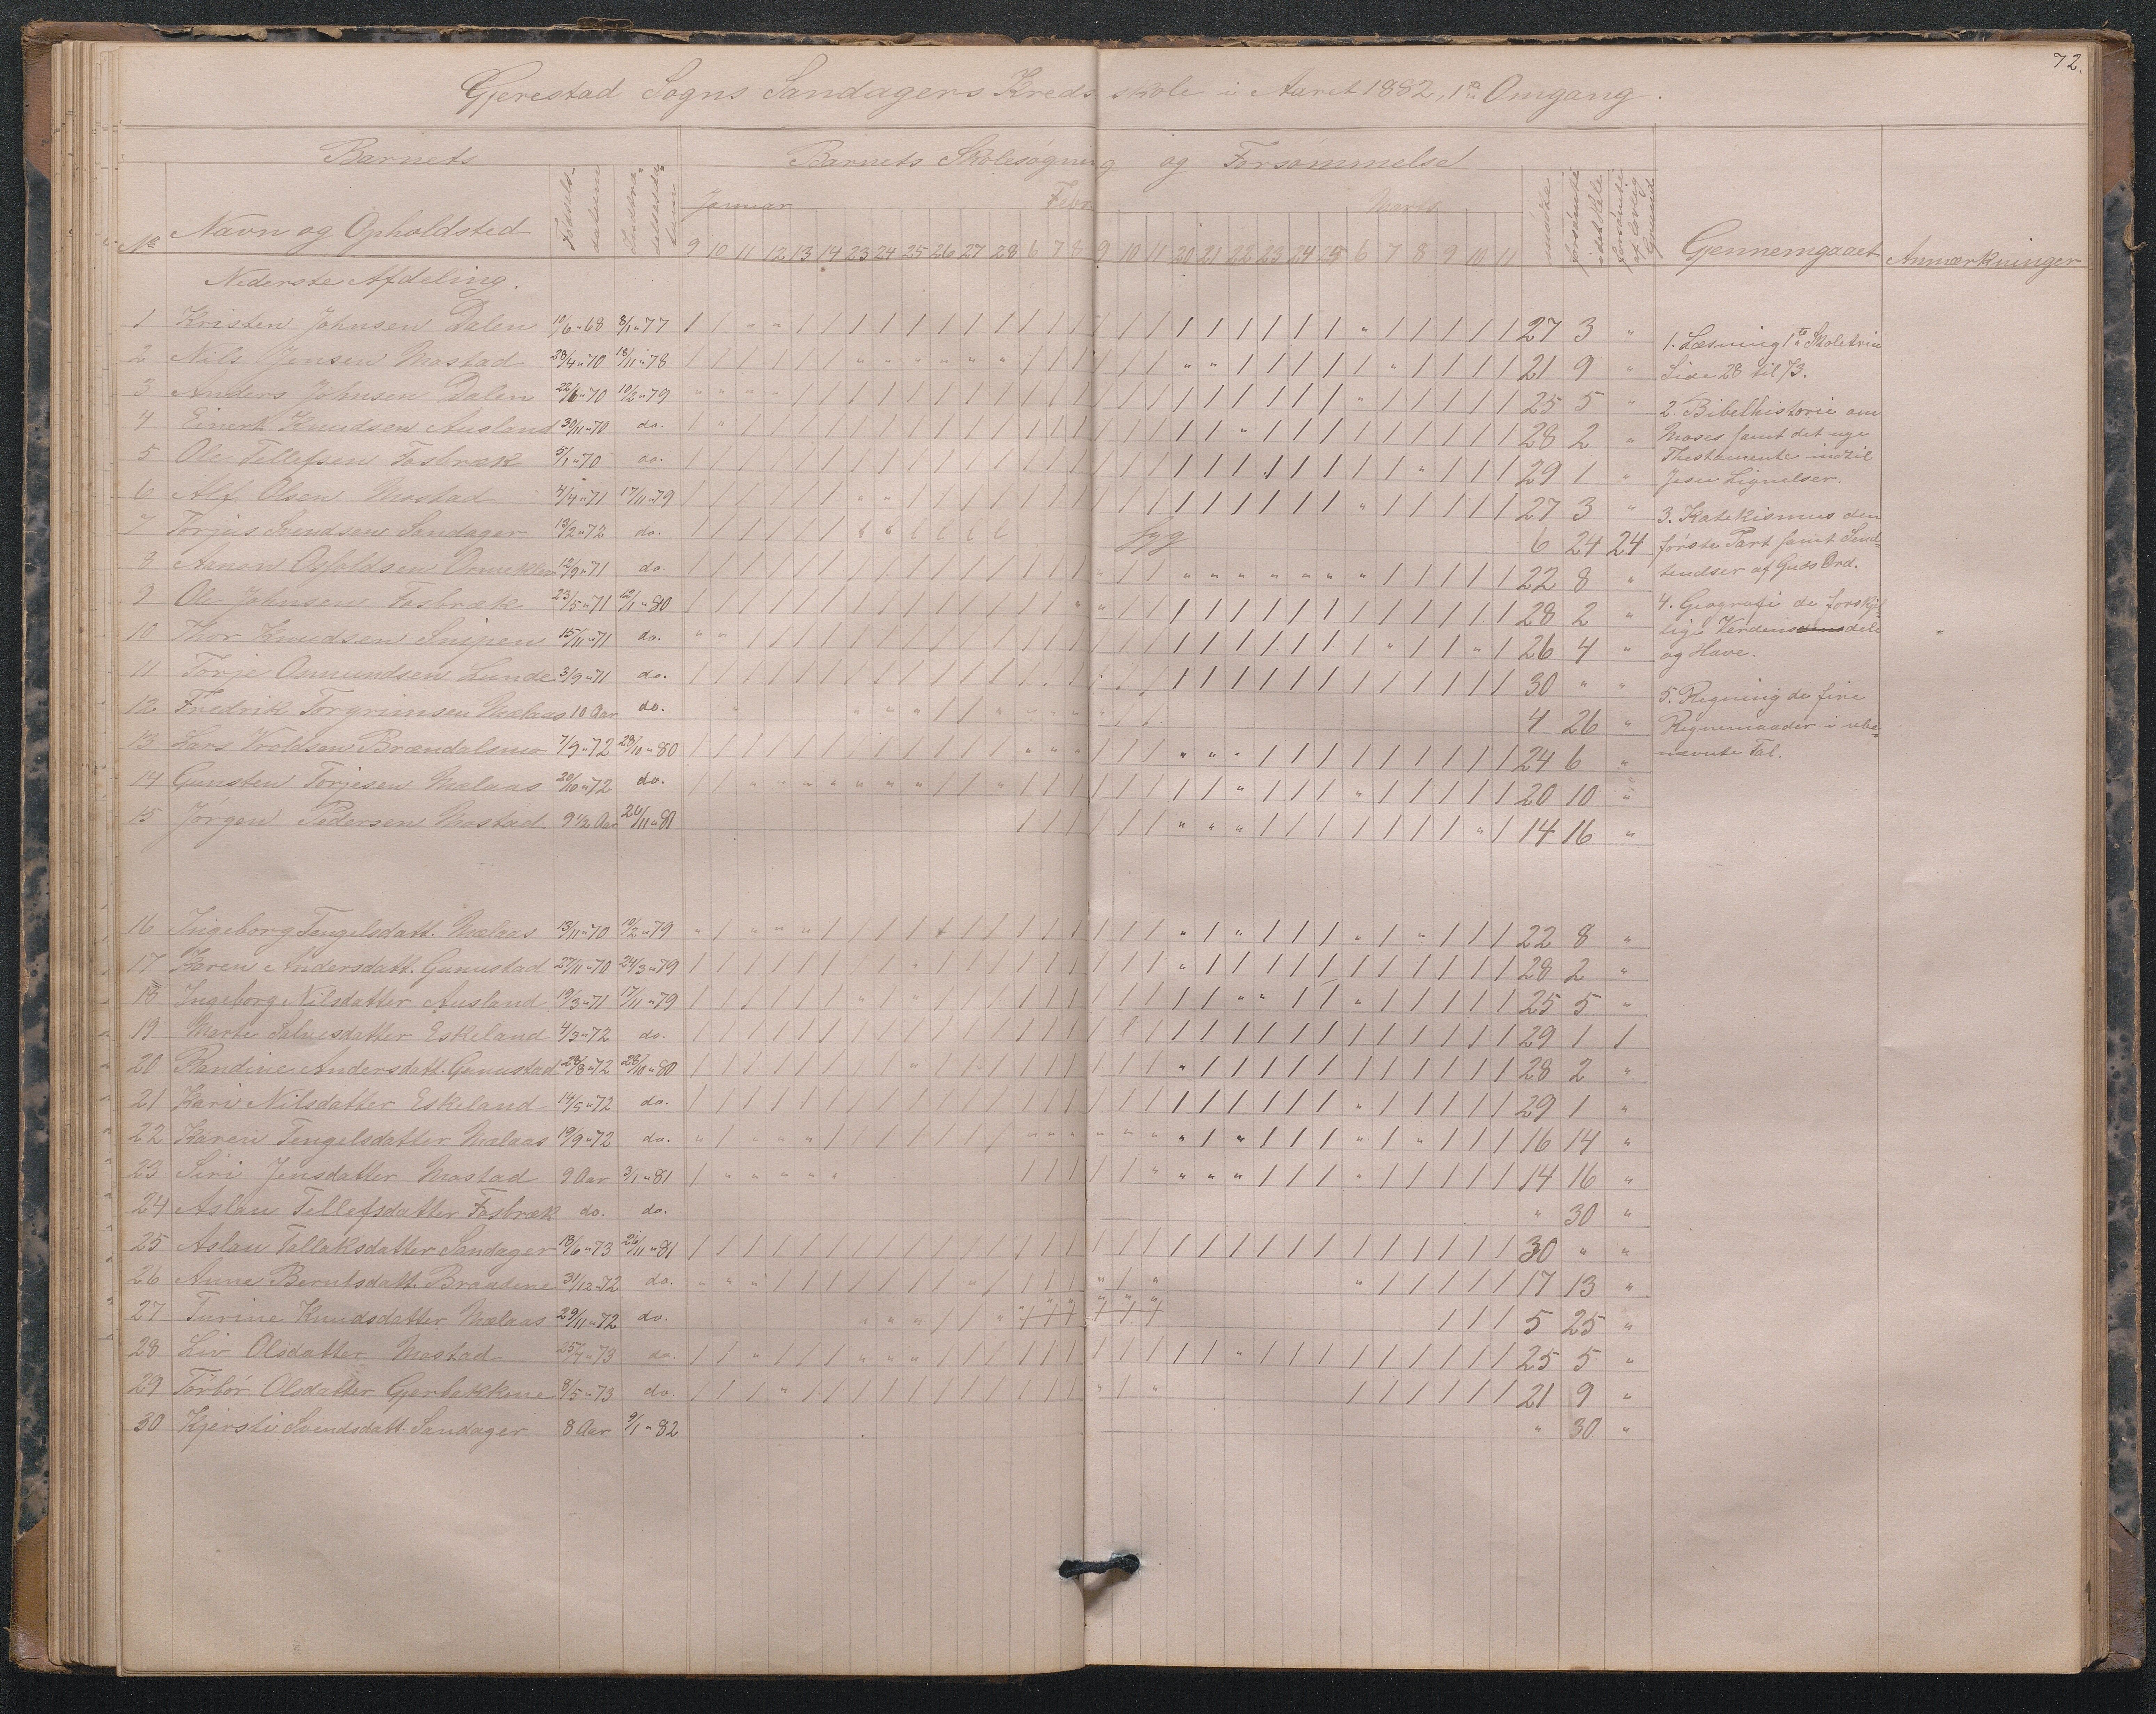 72.
Gjerestad Sogns Sandagers Kredsskole i Aaret 1882, 1ste Omgang.
Barnets Barnets Skolesøgning og Forsømmelse
Januar Febr. Marts
No Navn og Opholdsted Fødsels-datum 9 10 11 12 13 14 23 24 25 26 27 28 6 7 8 9 10 11 20 21 22 23 24 25 6 7 8 9 10 11 mødte forsømte i det Hele forsømte af lovlig Grund Gennemgaaet Anmærkninger
Nederste Afdeling.
1 Kristen Johnsen Dalen 10/6 " 68 8/1 " 77 27 3 "
2 Nils Jensen Mostad 28/4 " 70 18/11 " 78 21 9 "
3 Anders Johnsen Dalen 22/6 " 70 10/2 " 79 25 5 "
4 Einert Knudsen Ausland 30/11 " 70 do. 28 2 "
5 Ole Tellefsen Fosbræk 5/1 " 70 do. 29 1 "
6 Alf Olsen Mostad 4/4 " 71 17/11 " 79 27 3 "
7 Torjus Svendsen Sandager 13/2 " 72 do. syg 6 24 24
8 Aanon Osfoldsen 12/9 " 71 do. 22 8 "
9 Ole Johnsen Fosbræk 23/5 " 71 12/1 " 80 28 2 "
10 Thor Knudsen Snipen 15/11 " 71 do. 26 4 "
11 Torje Osmundsen Lunde 3/9 " 71 do. 30 " "
12 Fredrik Torgrimsen Mælaas 10 Aar do. 4 26 "
13 Lars Woldsen Brændalsmo 7/9 " 72 28/10 " 80 24 6 "
14 Gunsten Torjesen Mælaas 20/10 " 72 do. 20 10 "
15 Jørgen Pedersen Mostad 9 1/2 Aar 26/11 " 81 14 16 "
16 Ingeborg Tengelsdatt. Mælaas 13/11 " 70 10/2 " 79 22 8 "
17 Karen Andersdatt. Gunustad 27/11 " 70 24/3 " 79 28 2 "
18 Ingeborg Nilsdatter Ausland 19/3 " 71 17/11 " 79 25 5 "
19 Marte Salvesdatter Eskeland 4/3 " 72 do. 29 1 1
20 Randine Andersdatt. Gunustad 28/8 " 72 28/10 " 80 28 2 "
21 Kari Nilsdatter Eskeland 14/5 " 72 do. 29 1 "
22 Karen Tengelsdatter Mælaas 19/9 " 72 do. 16 14 "
23 Siri Jensdatter Mostad 9 Aar 3/1 " 81 14 16 "
24 Aslau Tellefsdatter Fosbræk do. do. " 30 "
25 Aslau Tallaksdatter Sandager 18/6 " 73 26/11 " 81 30 " "
26 Anne Berntsdatt. Braadene 31/12 " 72 do. 17 13 "
27 Turine Knudsdatter Mælaas 29/11 " 72 do. 5 25 "
28 Liv Olsdatter Mostad 25/7 " 73 do. 25 5 "
29 Torbør Olsdatter Gjerbekkene 8/5 " 73 do. 21 9 "
30 Kjersti Svendsdatt. Sandager 8 Aar 9/1 " 82 " 30 "
1. Læsning 1ste Skoletrin
Side 28 til 73.
2. Bibelhistorie om
Moses samt det nye
Thestamente indtil
Jesu Lignelser.
3. Katekismus den
første Part samt Sæd-
tendser af Guds Ord.
4. Geografi de forskjel
lige Verdensdele
og Have.
5. Regning de fire
Regnemaader i ube-
nævnte Tal.